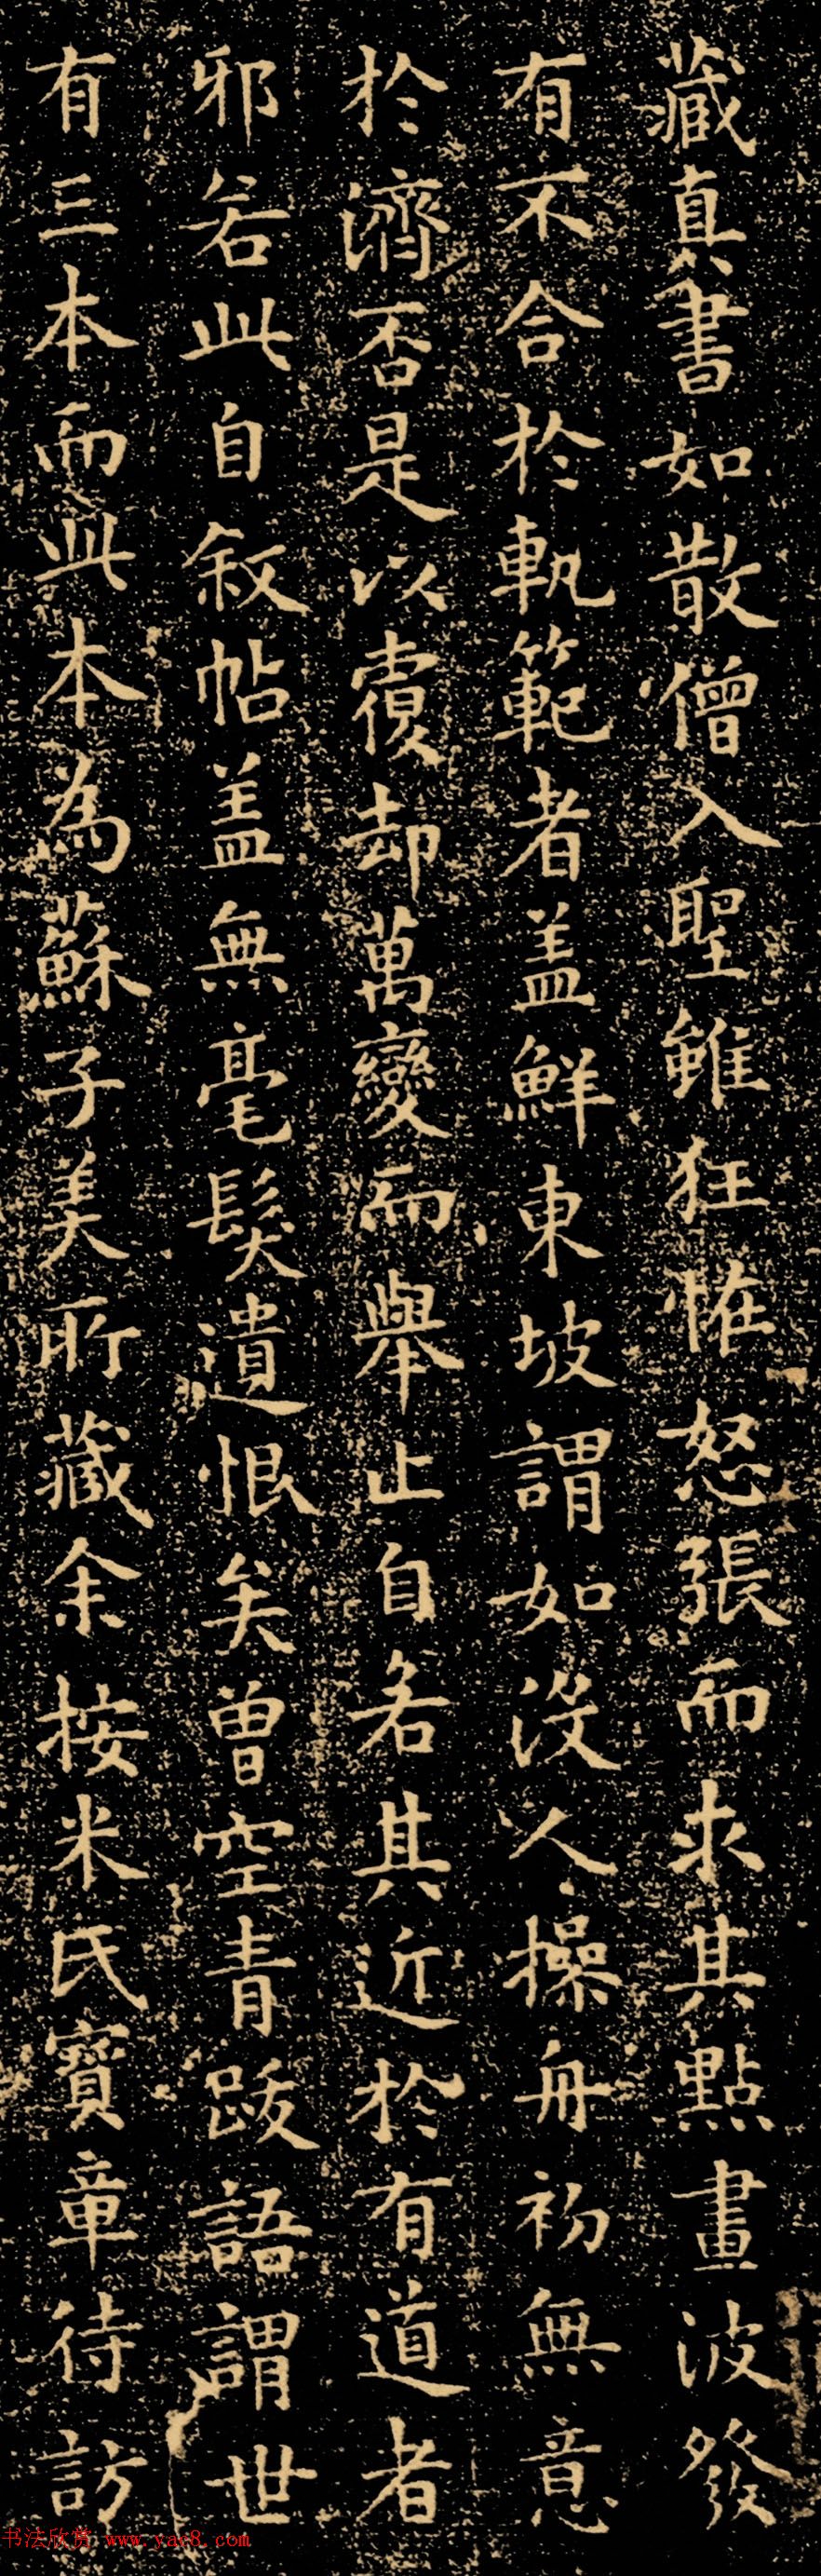 藏真書如散僧入聖雖狂恠怒張而求其點畫波發
有不合於軌範者盖鮮東坡謂如没人操舟初無意
於濟否是以覆却萬變而舉止自若其近於有道者
邪若此自叙帖盖無毫髮遺恨矣曽空青跋語謂世
有三本而此本為蘇子美所藏余按米氏寳章待訪
书法欣赏 www.yac8.com